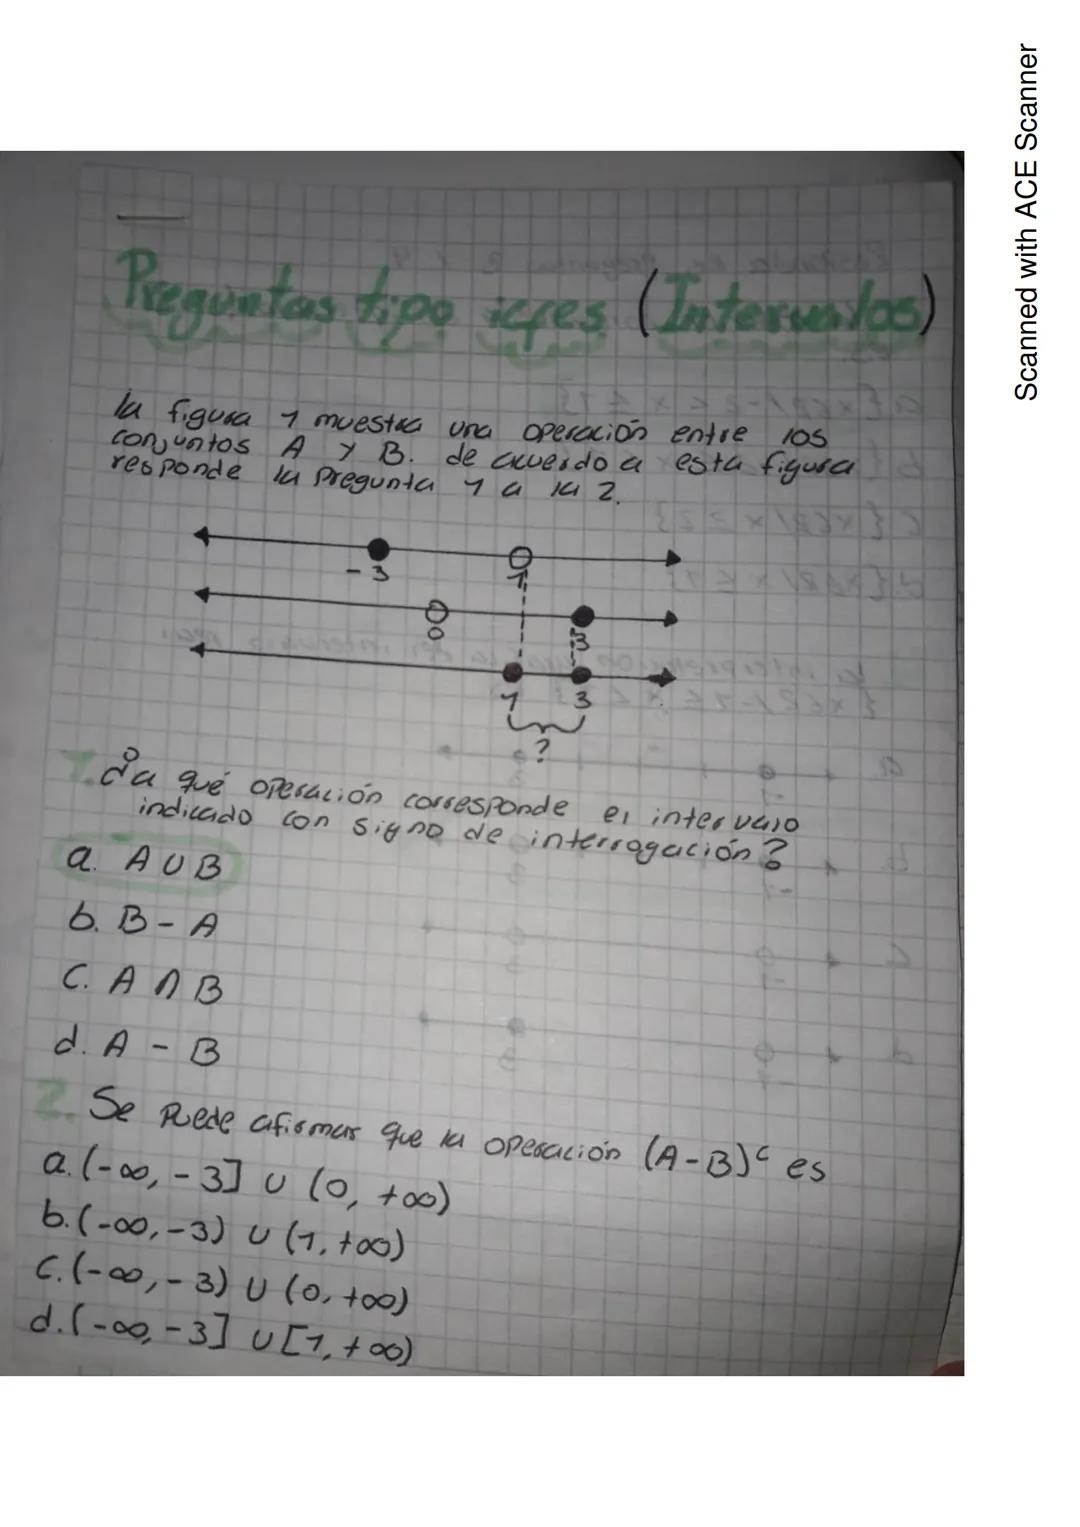 Preguntas tipo icfes (Intervalos)
la figura 1 muestra una operación entre los
conjuntos A y B. de acuerdo a esta figura
responde la pregunta 1 a la 2.
-3 1
0 3
1 3
?
1. ¿a qué operación corresponde el intervalo
indicado con signo de interrogación?
a. A U B
b. B - A
C. A ∩ B
d. A - B
2. Se puede afirmar que la operación (A-B)ᶜ es
a. (-∞, -3] U (0, +∞)
b. (-∞, -3) U (1, +∞)
C. (-∞, -3) U (0, +∞)
d. (-∞, -3] U [1, +∞)
Scanned with ACE Scanner